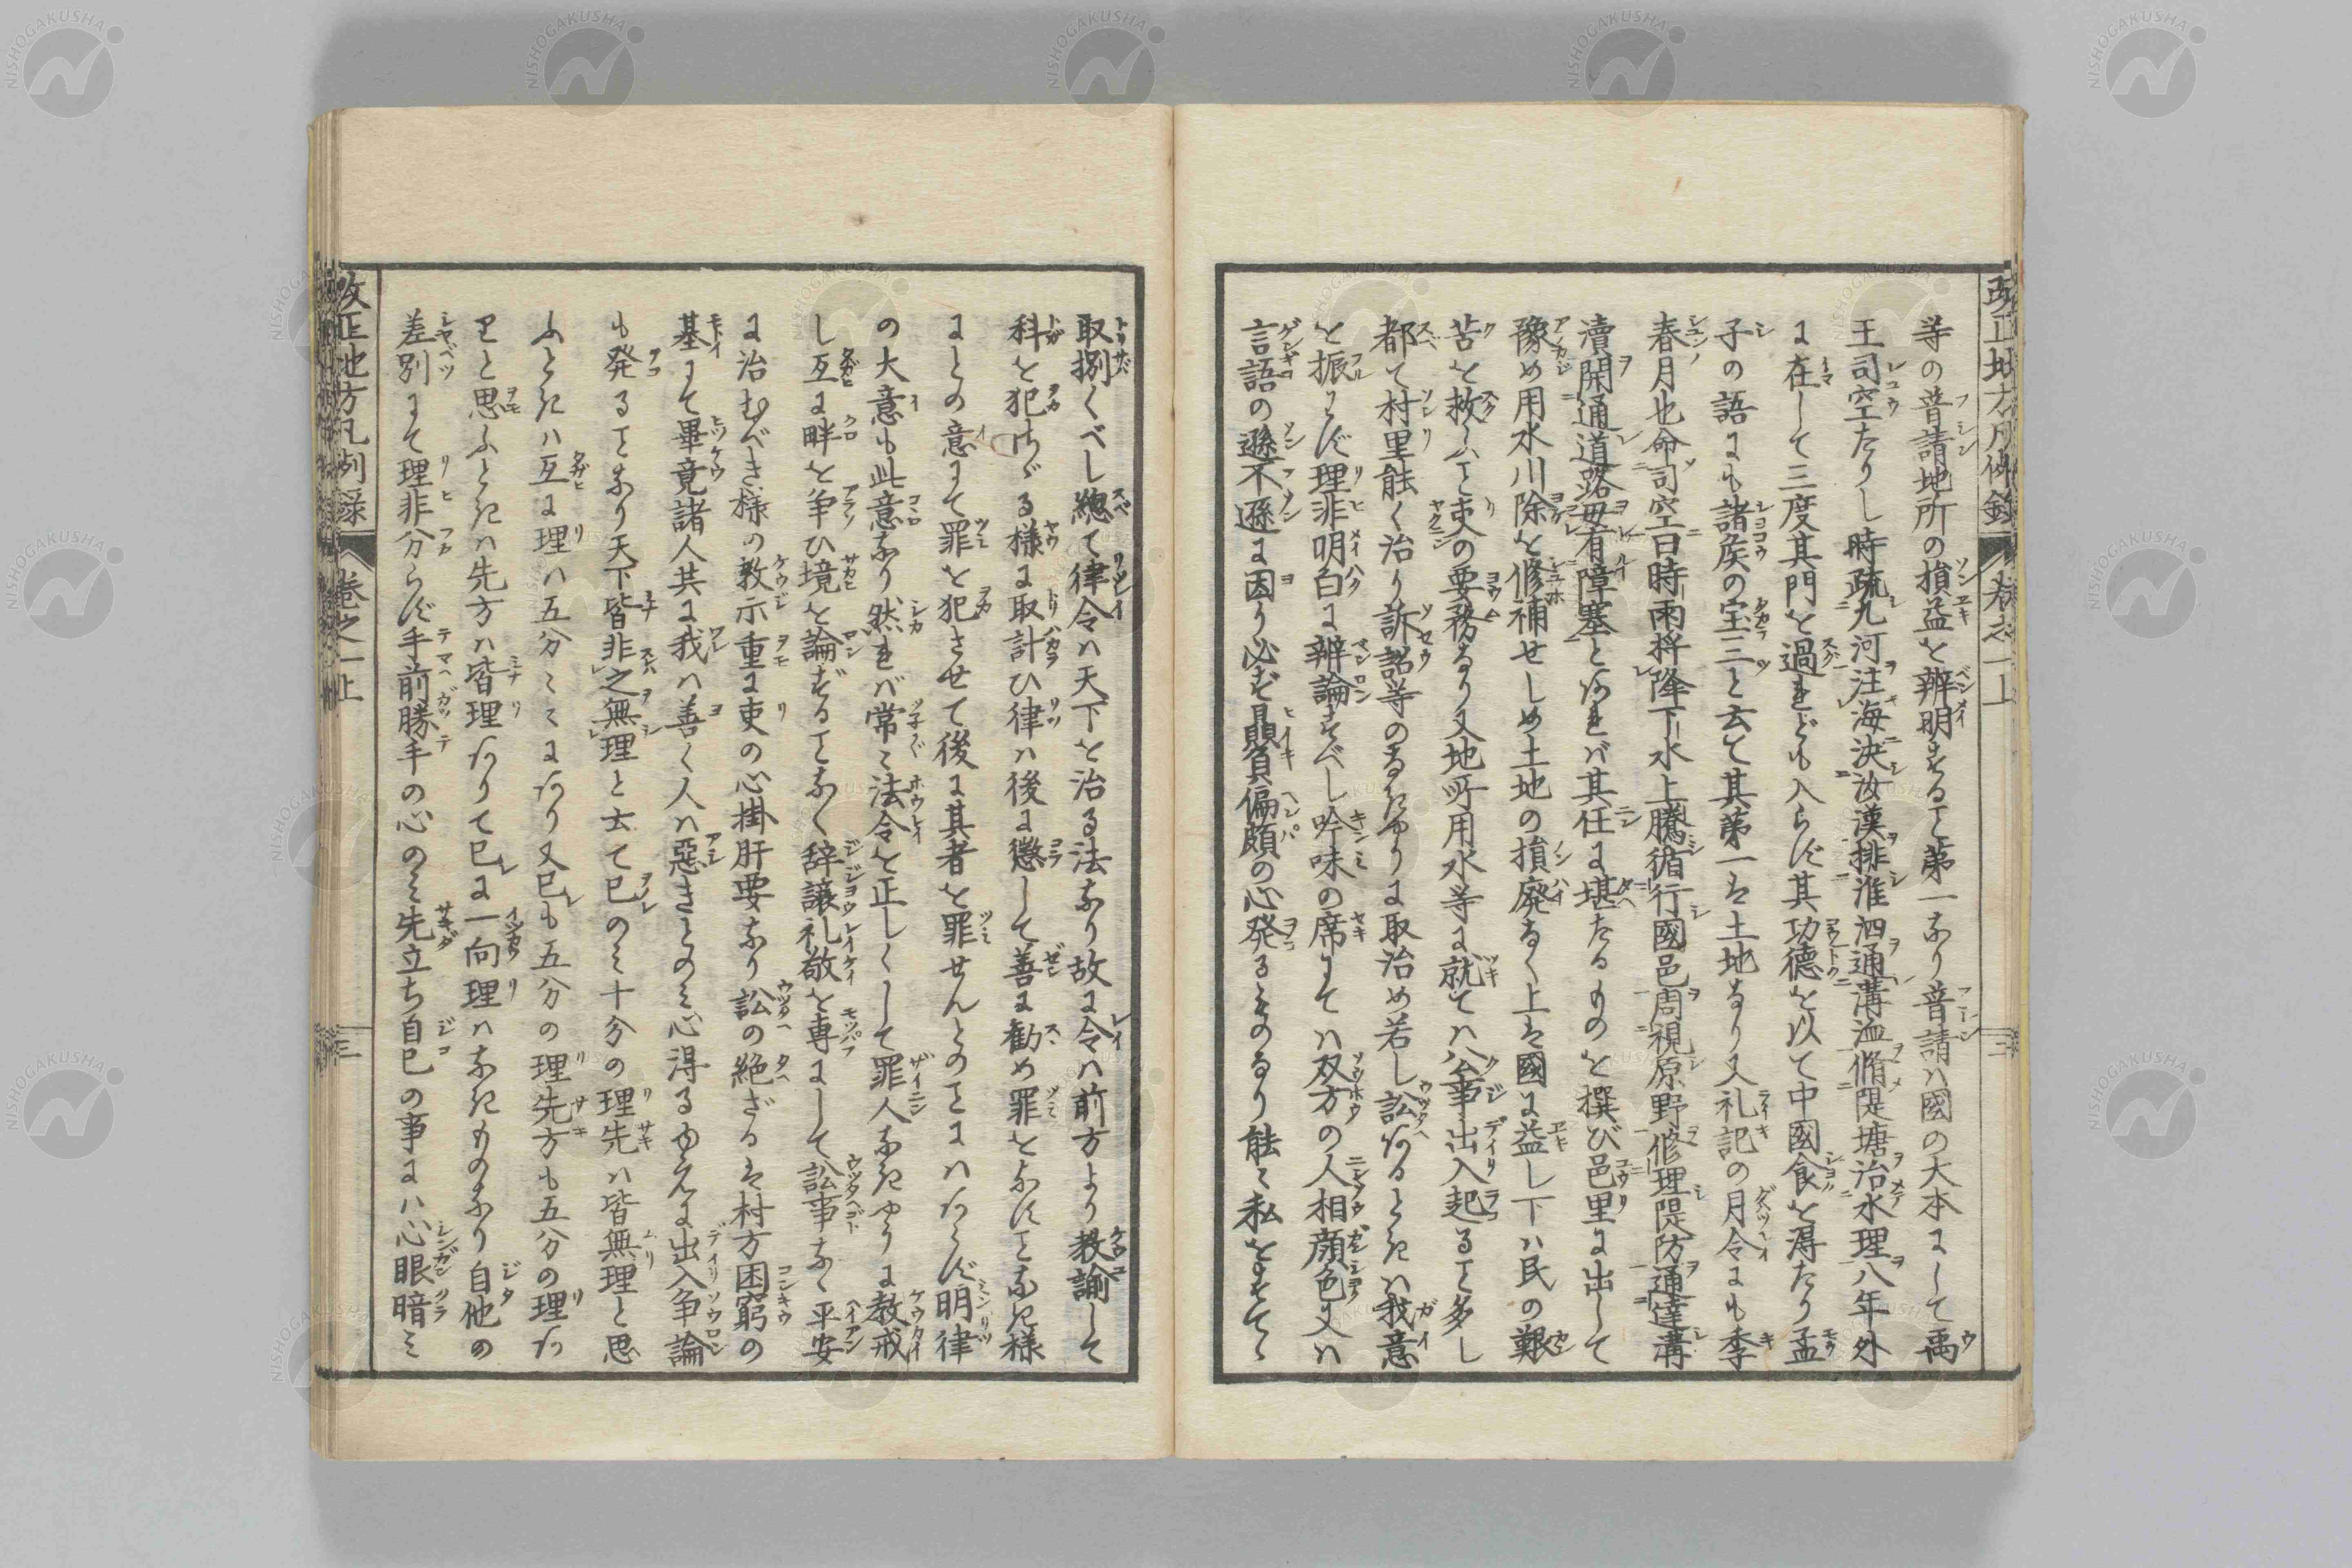 等の普請地所の損益を辨明するヿ第一なり普請ハ國の大本にして禹
王司空たりし時疏九河注海決汝漢排淮泗通溝洫脩隄塘治水理八年外
に在して三度其門を過れども入らず其功德を以て中國食を得たり孟
子の語にも諸矦の宝三と云て其第一は土地なり又礼記の月令にも季
春月也命司空曰時雨将降下水上騰循行國邑周視原野修理隄防通達溝
瀆開通道路毋有障塞とあれバ其任に堪たるものを撰び邑里に出して
豫め用水川除を修補せしめ土地の損廃なく上は國に益し下ハ民の艱
苦を救ふヿ吏の要務なり又地所用水等に就てハ公事出入起るヿ多し
都て村里能く治り訴詔等のなきやうに取治め若し訟あるときハ我意
を振らず理非明白に辨論すべし吟味の席にてハ双方の人相顔色又ハ
言語の遜不遜に因り必ず贔負偏頗の心発るものなり能〻私をすてゝ
改正地方凡例録 巻之一上 三
取捌くべし總て律令ハ天下を治る法なり故に令ハ前方より教諭して
科を犯さゞる様に取計ひ律ハ後に懲して善に勧め罪をよすヿなき様
にとの意にて罪を犯させて後に其者を罪せんとのヿにハあらず明律
の大意も此意なり然れバ常〻法令を正しくして罪人なきやうに教戒
し互に畔を争ひ境を論ずるヿなく辞譲礼敬を専にして訟事なく平安
に治むべき様の教示重に吏の心掛肝要なり訟の絶ざるは村方困窮の
基にて畢竟諸人共に我ハ善く人ハ惡きとのミ心得るゆえに出入争論
も発るヿなり天下皆非之無理と云て已のミ十分の理先ハ皆無理と思
ふときハ互に理ハ五分〻〻にあり又已も五分の理先方も五分の理あ
りと思ふときハ先方ハ皆理ありて已に一向理ハなきものなり自他の
差別にて理非分らず手前勝手の心のミ先立ち自已の事にハ心眼暗ミ
改正地方凡例録 巻之一上 三